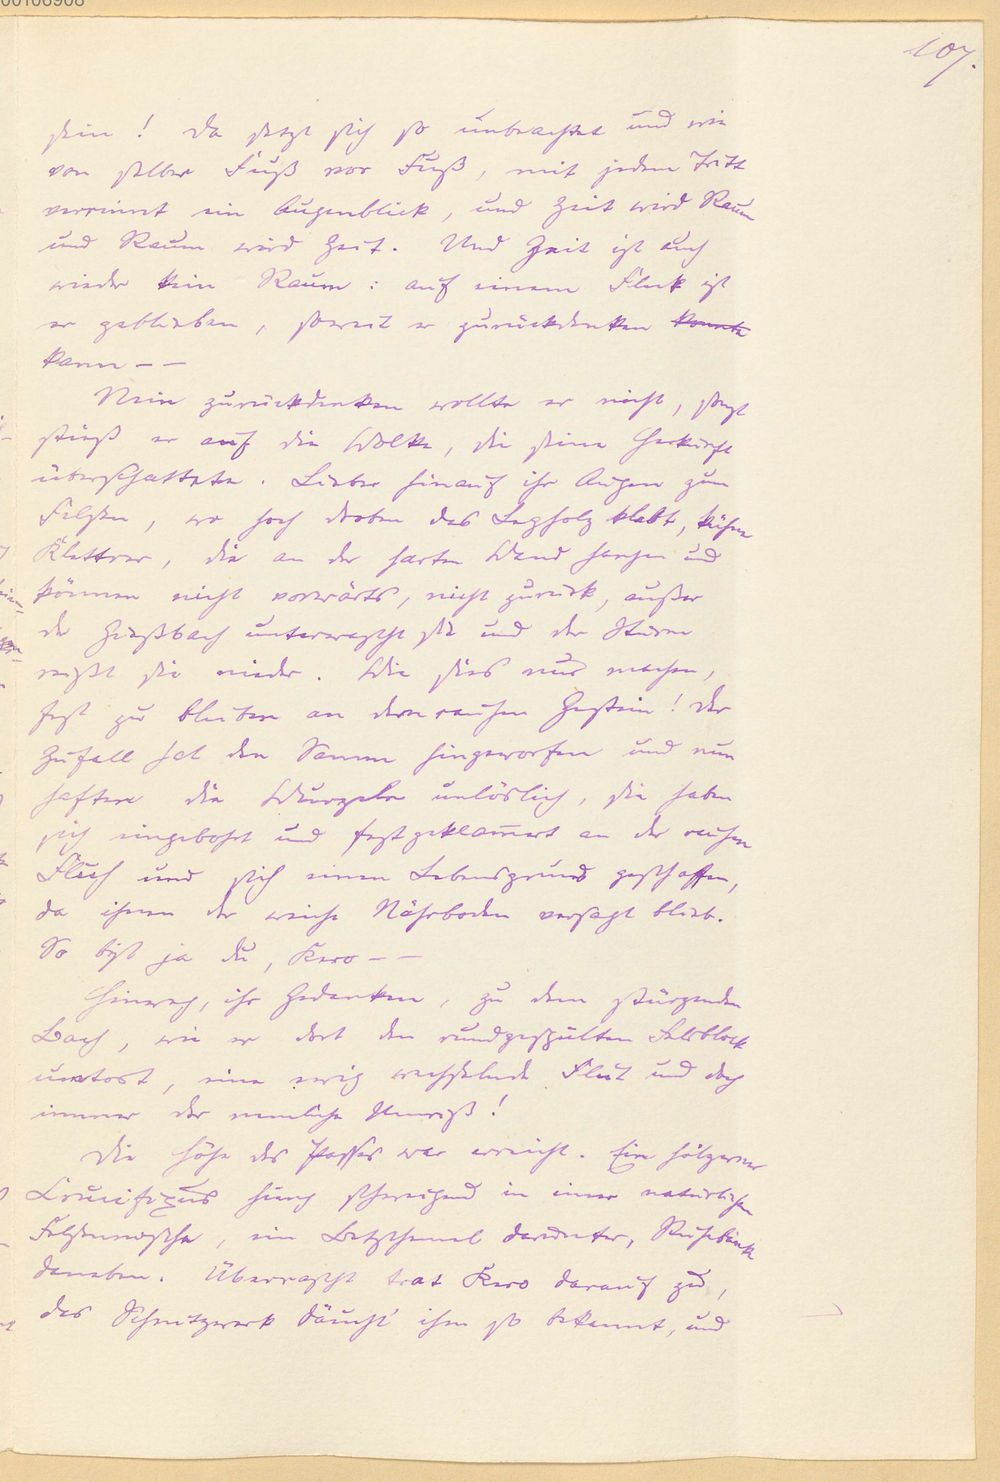 00106908
107.
sein! Da setzt sich so unbeachtet und wie
von selber Fuß vor Fuß, mit jedem Tritt
verrinnt ein Augenblick, und Zeit wird Raum
und Raum wird Zeit. Und Zeit ist auch
wieder kein Raum: auf einem Fleck ist
er geblieben, soweit er zurückdenken konnte
kann – –
Nein zurückdenken wollte er nicht, sonst
stieß er auf die Wolke, die seine Herkunft
überschattete. Lieber hinauf ihr Augen zum
Felsen, wo hoch droben das Legholz klebt, kühne
Kletterer, die an der harten Wand hangen und
können nicht vorwärts, nicht zurück, außer
der Gießbach unterwascht sie und der Sturm
reißt sie nieder. Wie sies nur machen,
fest zu bleiben an dem rauhen Gestein! Der
Zufall hat den Samen hingeworfen und nun
haften die Wurzeln unlöslich, sie haben
sich eingebohrt und festgeklam̅ert an der rauhen
Fluh und sich einen Lebensgrund geschaffen,
da ihnen der weiche Nährboden versagt blieb.
So bist ja du, Kero – –
Hinweg, ihr Gedanken, zu dem stürzenden
Bach, wie er dort den rundgespülten Felsblock
umtost, eine ewig wechselnde Flut und doch
immer der nemliche Umriß!
Die Höhe des Passes war erreicht. Ein hölzerner
Crucifixus hing schweigend in einer natürlichen
Felsennische, ein Betschemel darunter, Ruhebänke
daneben. Überrascht trat Kero darauf zu,
das Schnitzwerk däucht' ihm so bekannt, und